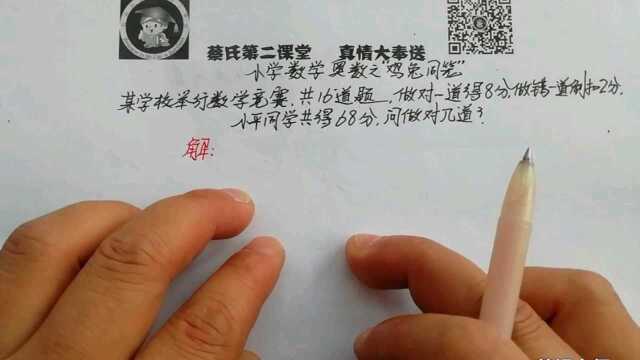 蔡氏第二课堂 真情大奉送
小学数学奥数之"鸡兔同笼"
某学校举行数学竞赛,共16道题,做对一道得8分,做错一道倒扣2分,
小平同学共得68分,问做对几道?
解: